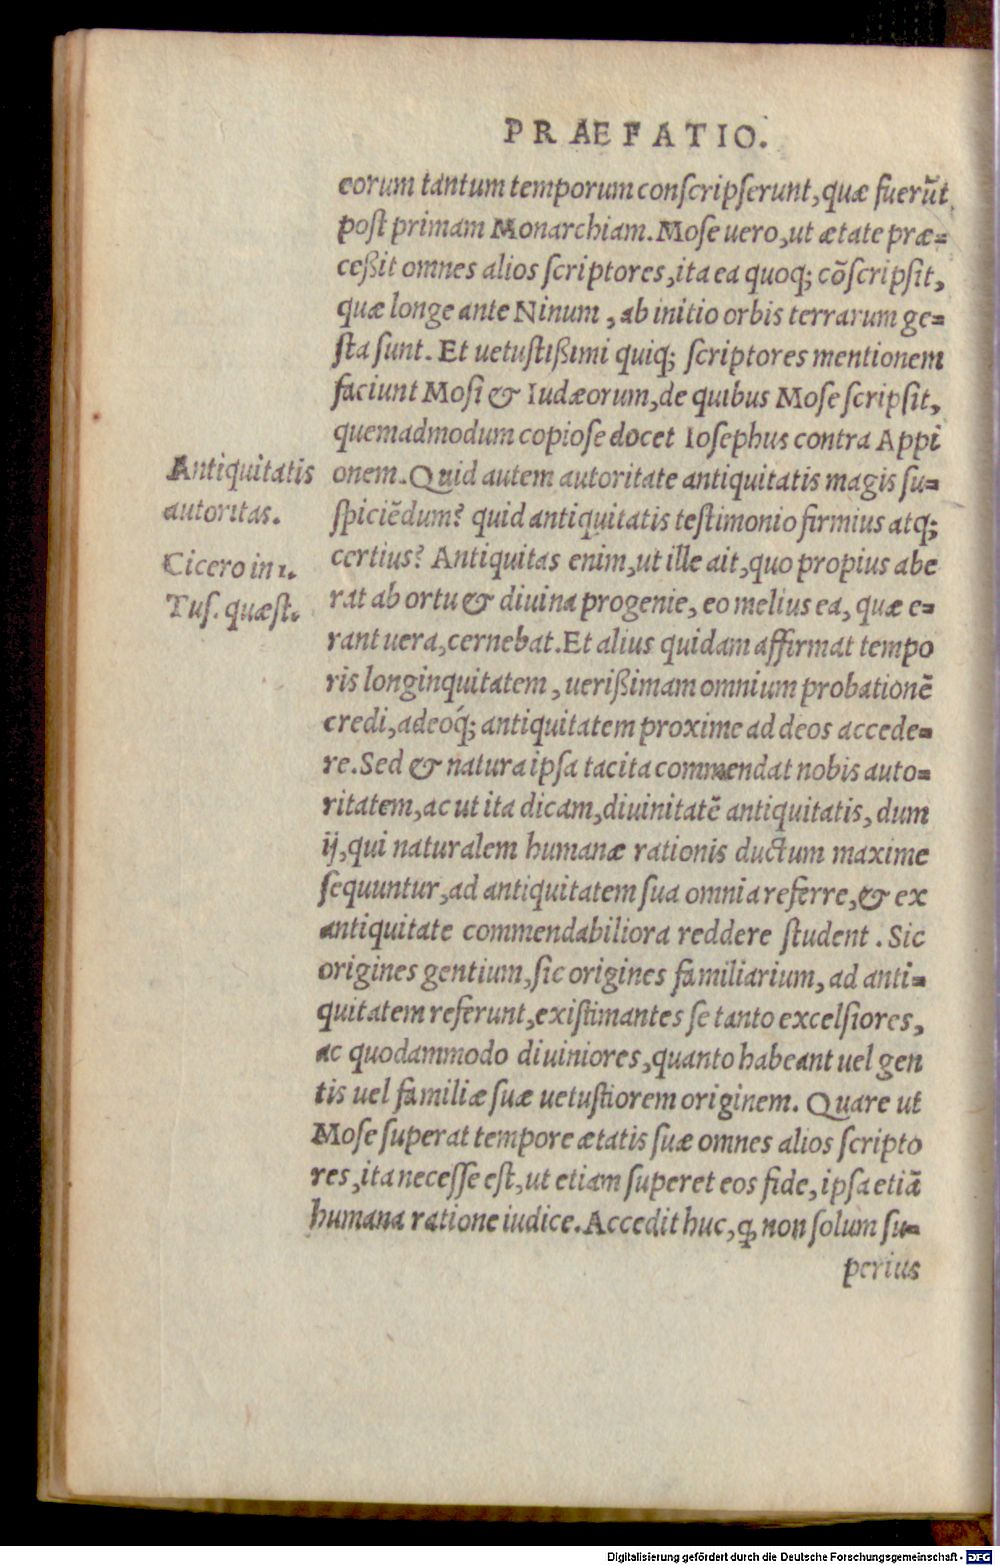 PRAEFATIO.
eorum tantum temporum conſcripſerunt, quæ fuerũt
poſt primam Monarchiam. Moſe uero, ut ætate præ=
ceßit omnes alios ſcriptores, ita ea quoq; cõſcripſit,
quæ longe ante Ninum, ab initio orbis terrarum ge=
ſta ſunt. Et uetuſtißimi quiq; ſcriptores mentionem
faciunt Moſi & Iudæorum, de quibus Moſe ſcripſit,
quemadmodum copioſe docet Ioſephus contra Appi
Antiquitatis
autoritas.
onem. Quid autem autoritate antiquitatis magis ſu=
ſpiciẽdum? quid antiquitatis teſtimonio firmius atq;
Cicero in 1.
Tuſ. quæſt.
certius? Antiquitas enim, ut ille ait, quo propius abe
rat ab ortu & diuina progenie, eo melius ea, quæ e=
rant uera, cernebat. Et alius quidam affirmat tempo
ris longinquitatem, uerißimam omnium probationẽ
credi, adeóq; antiquitatem proxime ad deos accede=
re. Sed & natura ipſa tacita commendat nobis auto=
ritatem, ac ut ita dicam, diuinitatẽ antiquitatis, dum
ij, qui naturalem humanæ rationis ductum maxime
ſequuntur, ad antiquitatem ſua omnia referre, & ex
antiquitate commendabiliora reddere ſtudent. Sic
origines gentium, ſic origines familiarium, ad anti=
quitatem referunt, exiſtimantes ſe tanto excelſiores,
ac quodammodo diuiniores, quanto habeant uel gen
tis uel familiæ ſuæ uetuſtiorem originem. Quare ut
Moſe ſuperat tempore ætatis ſuæ omnes alios ſcripto
res, ita neceſſe eſt, ut etiam ſuperet eos fide, ipſa etiã
humana ratione iudice. Accedit huc, ꝙ non ſolum ſu=
perius
Digitalisierung gefördert durch die Deutsche Forschungsgemeinschaft - DFG